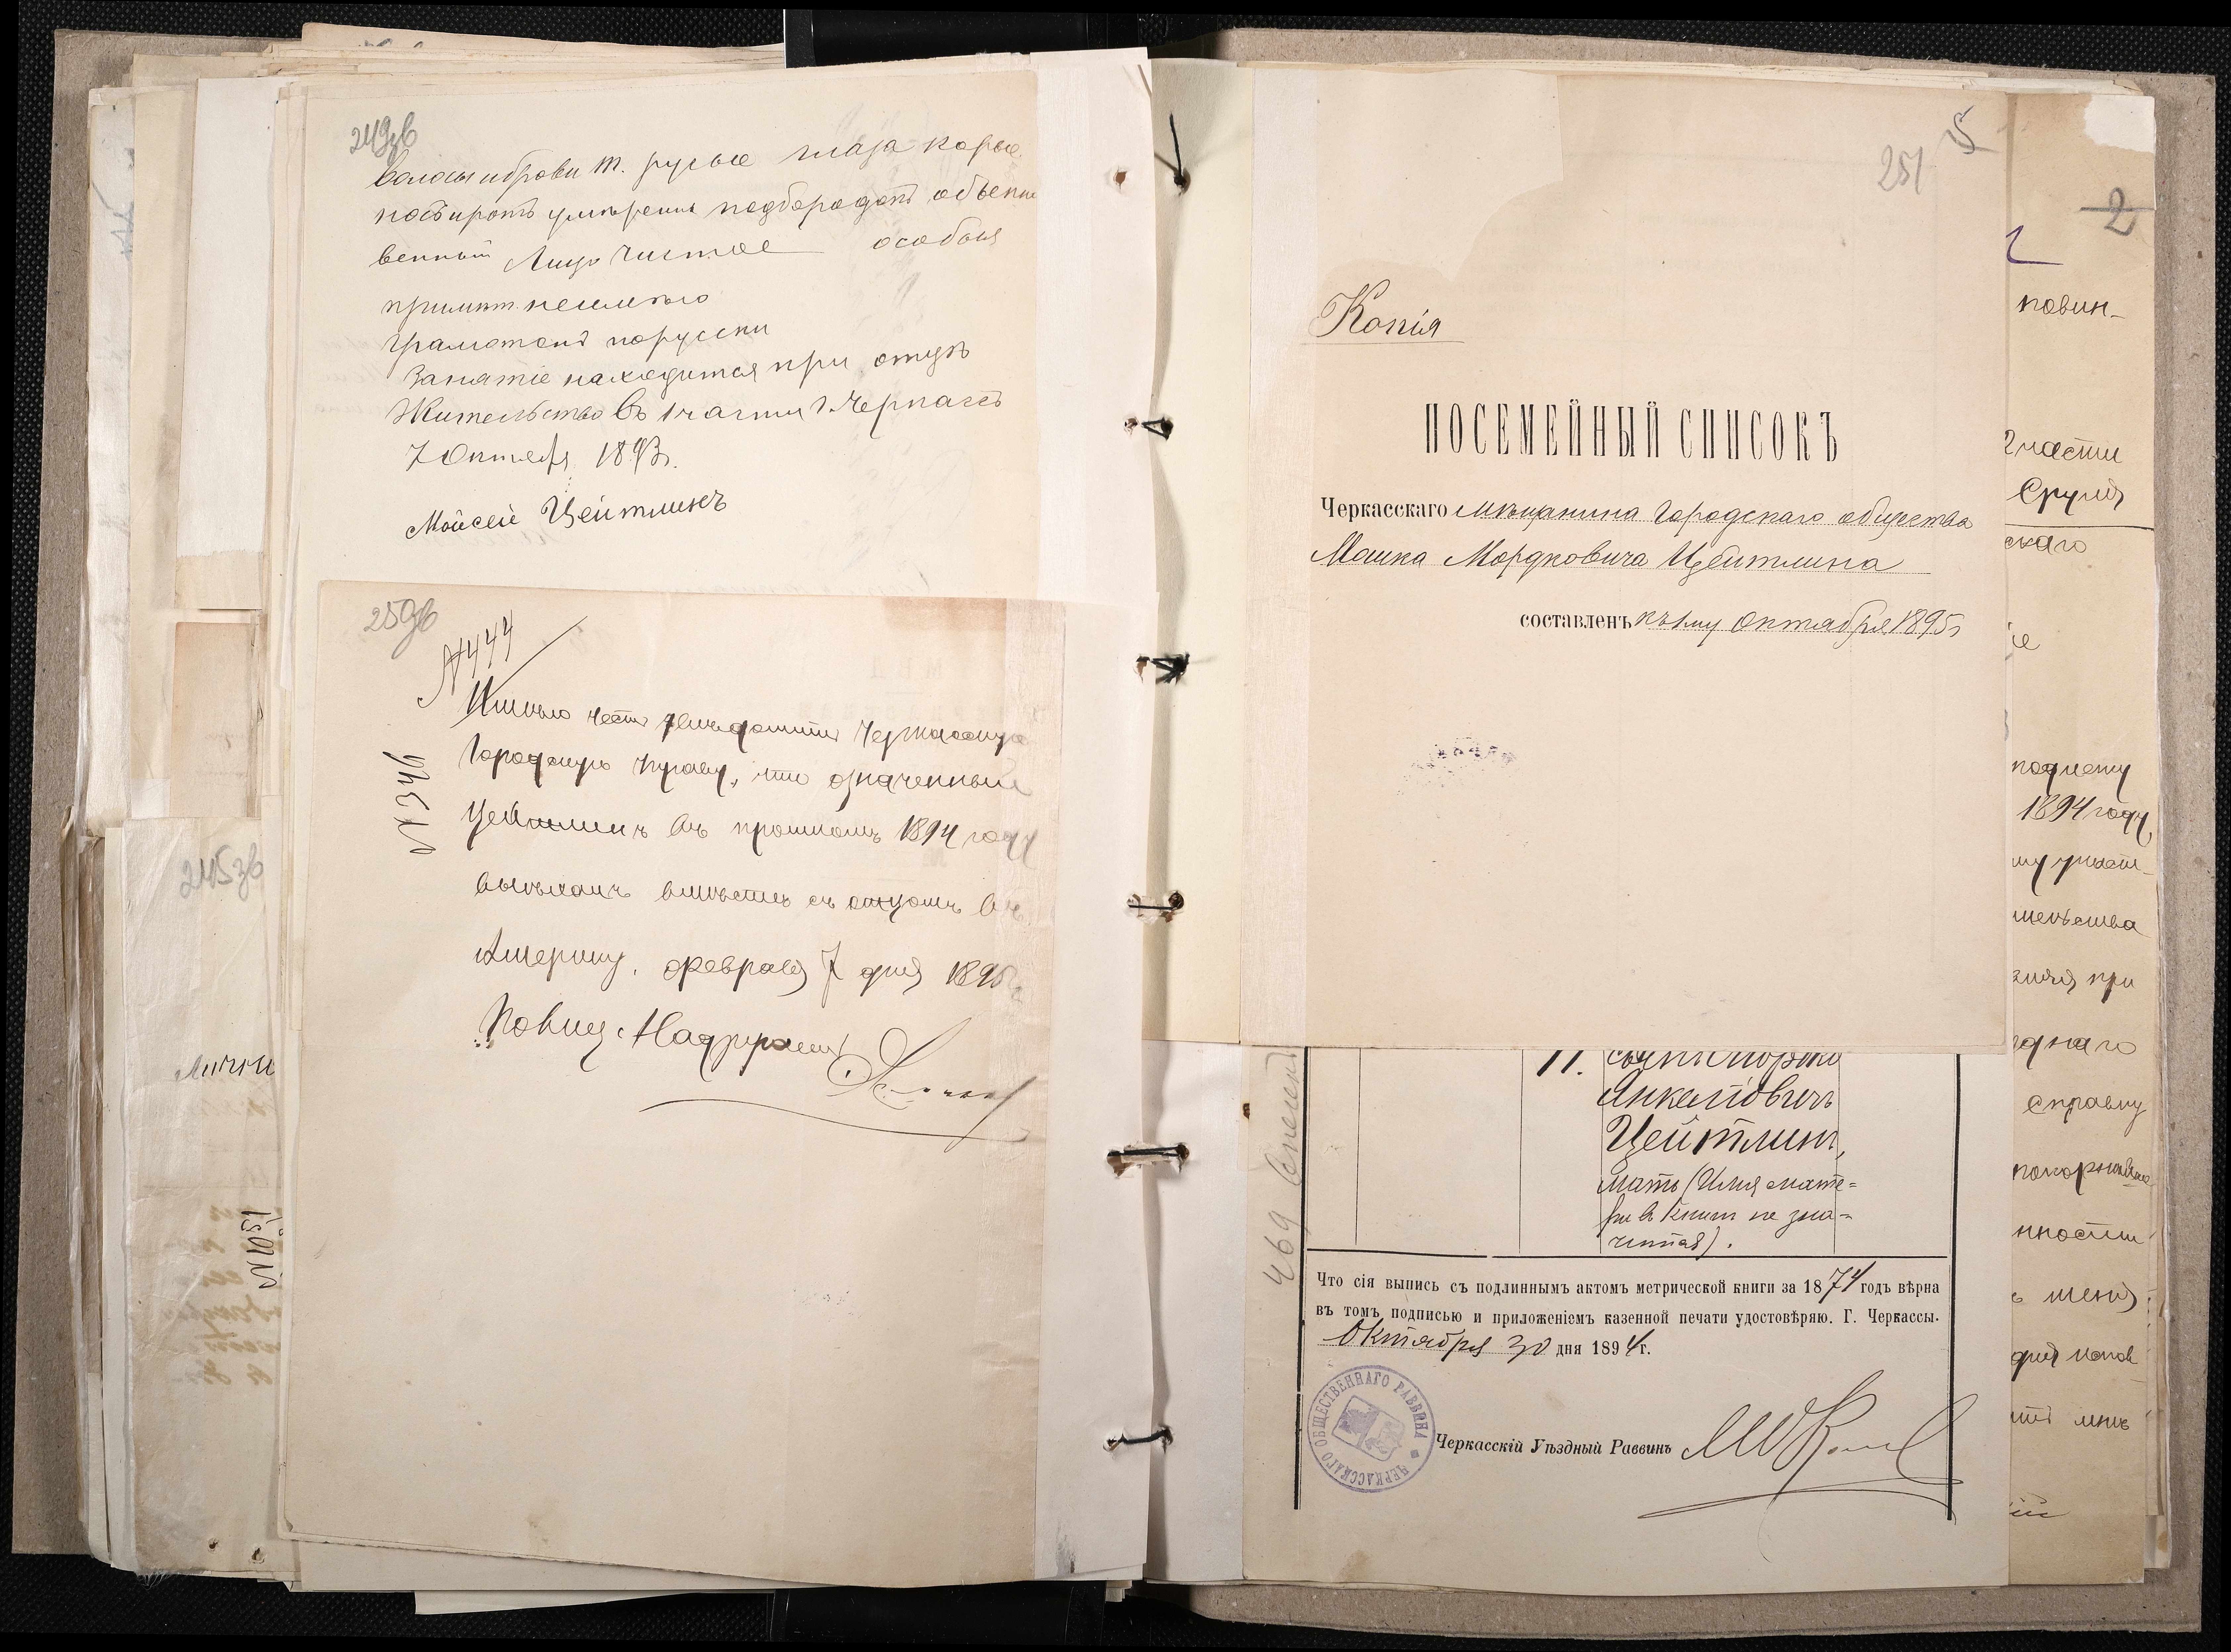 249зв
Волосы и брови т. русые глаза карые
носъ и ротъ умѣрены подбородокъ обыкно
венный Лицо чистое особыя
примѣт. неимѣю
Грамотенъ порусски
Занятіе находится при отцѣ
Жительство въ 1 части г. Черкассъ
7 Октября 1893г.
Мойсей Цейтлинъ
250зв
№444
№346
Имѣю честь увѣдомить Черкасскую
Городскую Управу, что означенный
Цейтлинъ въ прошломъ 1894 году
выѣхалъ вмѣстѣ съ отцомъ въ
Америку, февраля 7 дня 1895 г.
Полиц. Надзиратель
245зв
Лични
№ 151
251
5
Копія
ПОСЕМЕЙНЫЙ СПИСОКЪ
Черкасскаго мѣщанина Городскаго общества
Мошка Мордковича Цейтлина
составленъ къ 1му Октября 1895г
11.
Янкелевичъ
Цейтлинъ,
мать (Имя мате=
ри въ книгѣ не зна=
чится).
469
Что сія выпись съ подлиннымъ актомъ метрической книги за 1874 годъ вѣрна
въ томъ подписью и приложеніемъ казенной печати удостовѣряю. Г. Черкассы.
Октября 30 дня 1894 г.
ЧЕРКАССКАГО ОБЩЕСТВЕННАГО РАВВИНА
Черкасскій Уѣздный Раввинъ
2
повин-
2 части
Сруля
скаго
1894 году,
шельства
при
справку
покорнѣйше
нности
меня
мнѣ